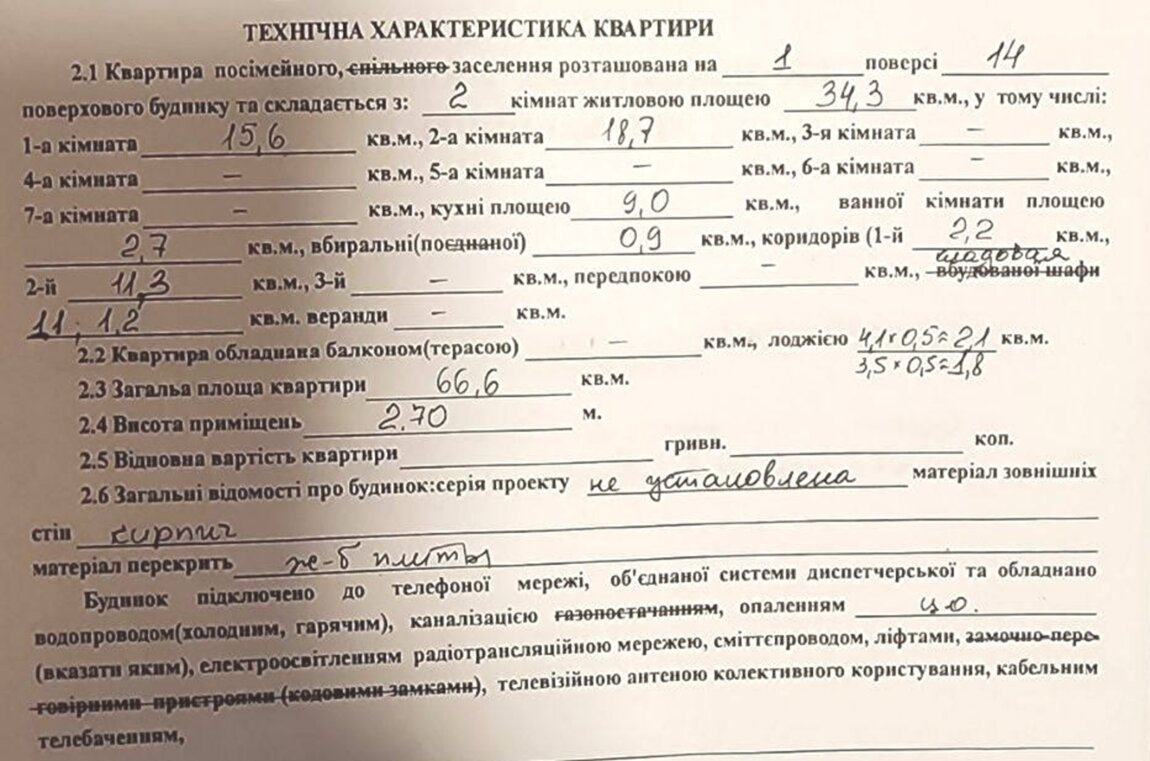 ТЕХНІЧНА ХАРАКТЕРИСТИКА КВАРТИРИ
2.1 Квартира посімейного, спільного заселення розташована на 1 поверсі 14
поверхового будинку та складається з: 2 кімнат житловою площею 34,3 кв.м., у тому числі:
1-а кімната 15,6 кв.м., 2-а кімната 18,7 кв.м., 3-я кімната – кв.м.,
4-а кімната – кв.м., 5-а кімната – кв.м., 6-а кімната – кв.м.,
7-а кімната – кв.м., кухні площею 9,0 кв.м., ванної кімнати площею
2,7 кв.м., вбиральні(поєднаної) 0,9 кв.м., коридорів (1-й 2,2 кв.м.,
кладовая
2-й 11,3 кв.м., 3-й – кв.м., передпокою – кв.м., вбудованої шафи
11; 1,2 кв.м. веранди – кв.м.
2.2 Квартира обладнана балконом(терасою) – кв.м., лоджією 4,1×0,5=2,1 кв.м.
3,5×0,5=1,8
2.3 Загалья площа квартири 66,6 кв.м.
2.4 Висота приміщень 2.70 м.
2.5 Відновна вартість квартири гривн. коп.
2.6 Загальні відомості про будинок:серія проекту не установлена матеріал зовнішніх
стін кирпич
матеріал перекрить ж-б плиты
Будинок підключено до телефоної мережі, об'єднаної системи диспетчерської та обладнано
водопроводом(холодним, гарячим), каналізацією газопостачанням, опаленням ц.о.
(вказати яким), електроосвітленням радіотрансляційною мережею, сміттєпроводом, ліфтами, замочно-пере-
говірними пристроями (кодовими замками), телевізійною антеною колективного користування, кабельним
телебаченням,